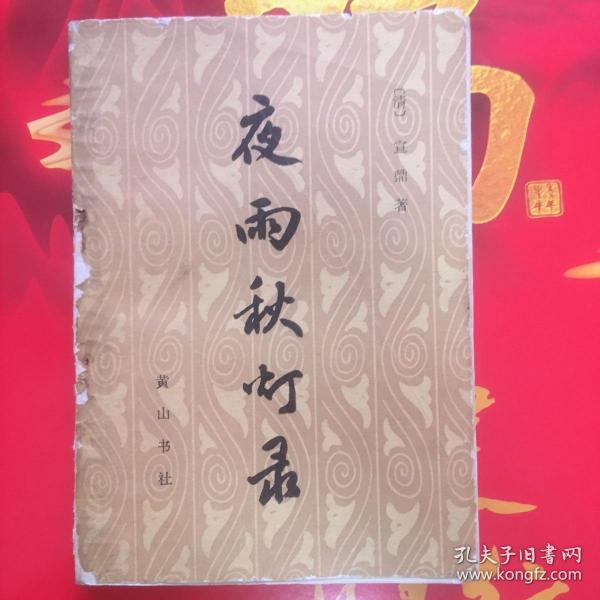 〔清〕宣鼎著
夜雨秋灯录
黄山书社
孔夫子旧書网
www.kongfz.com